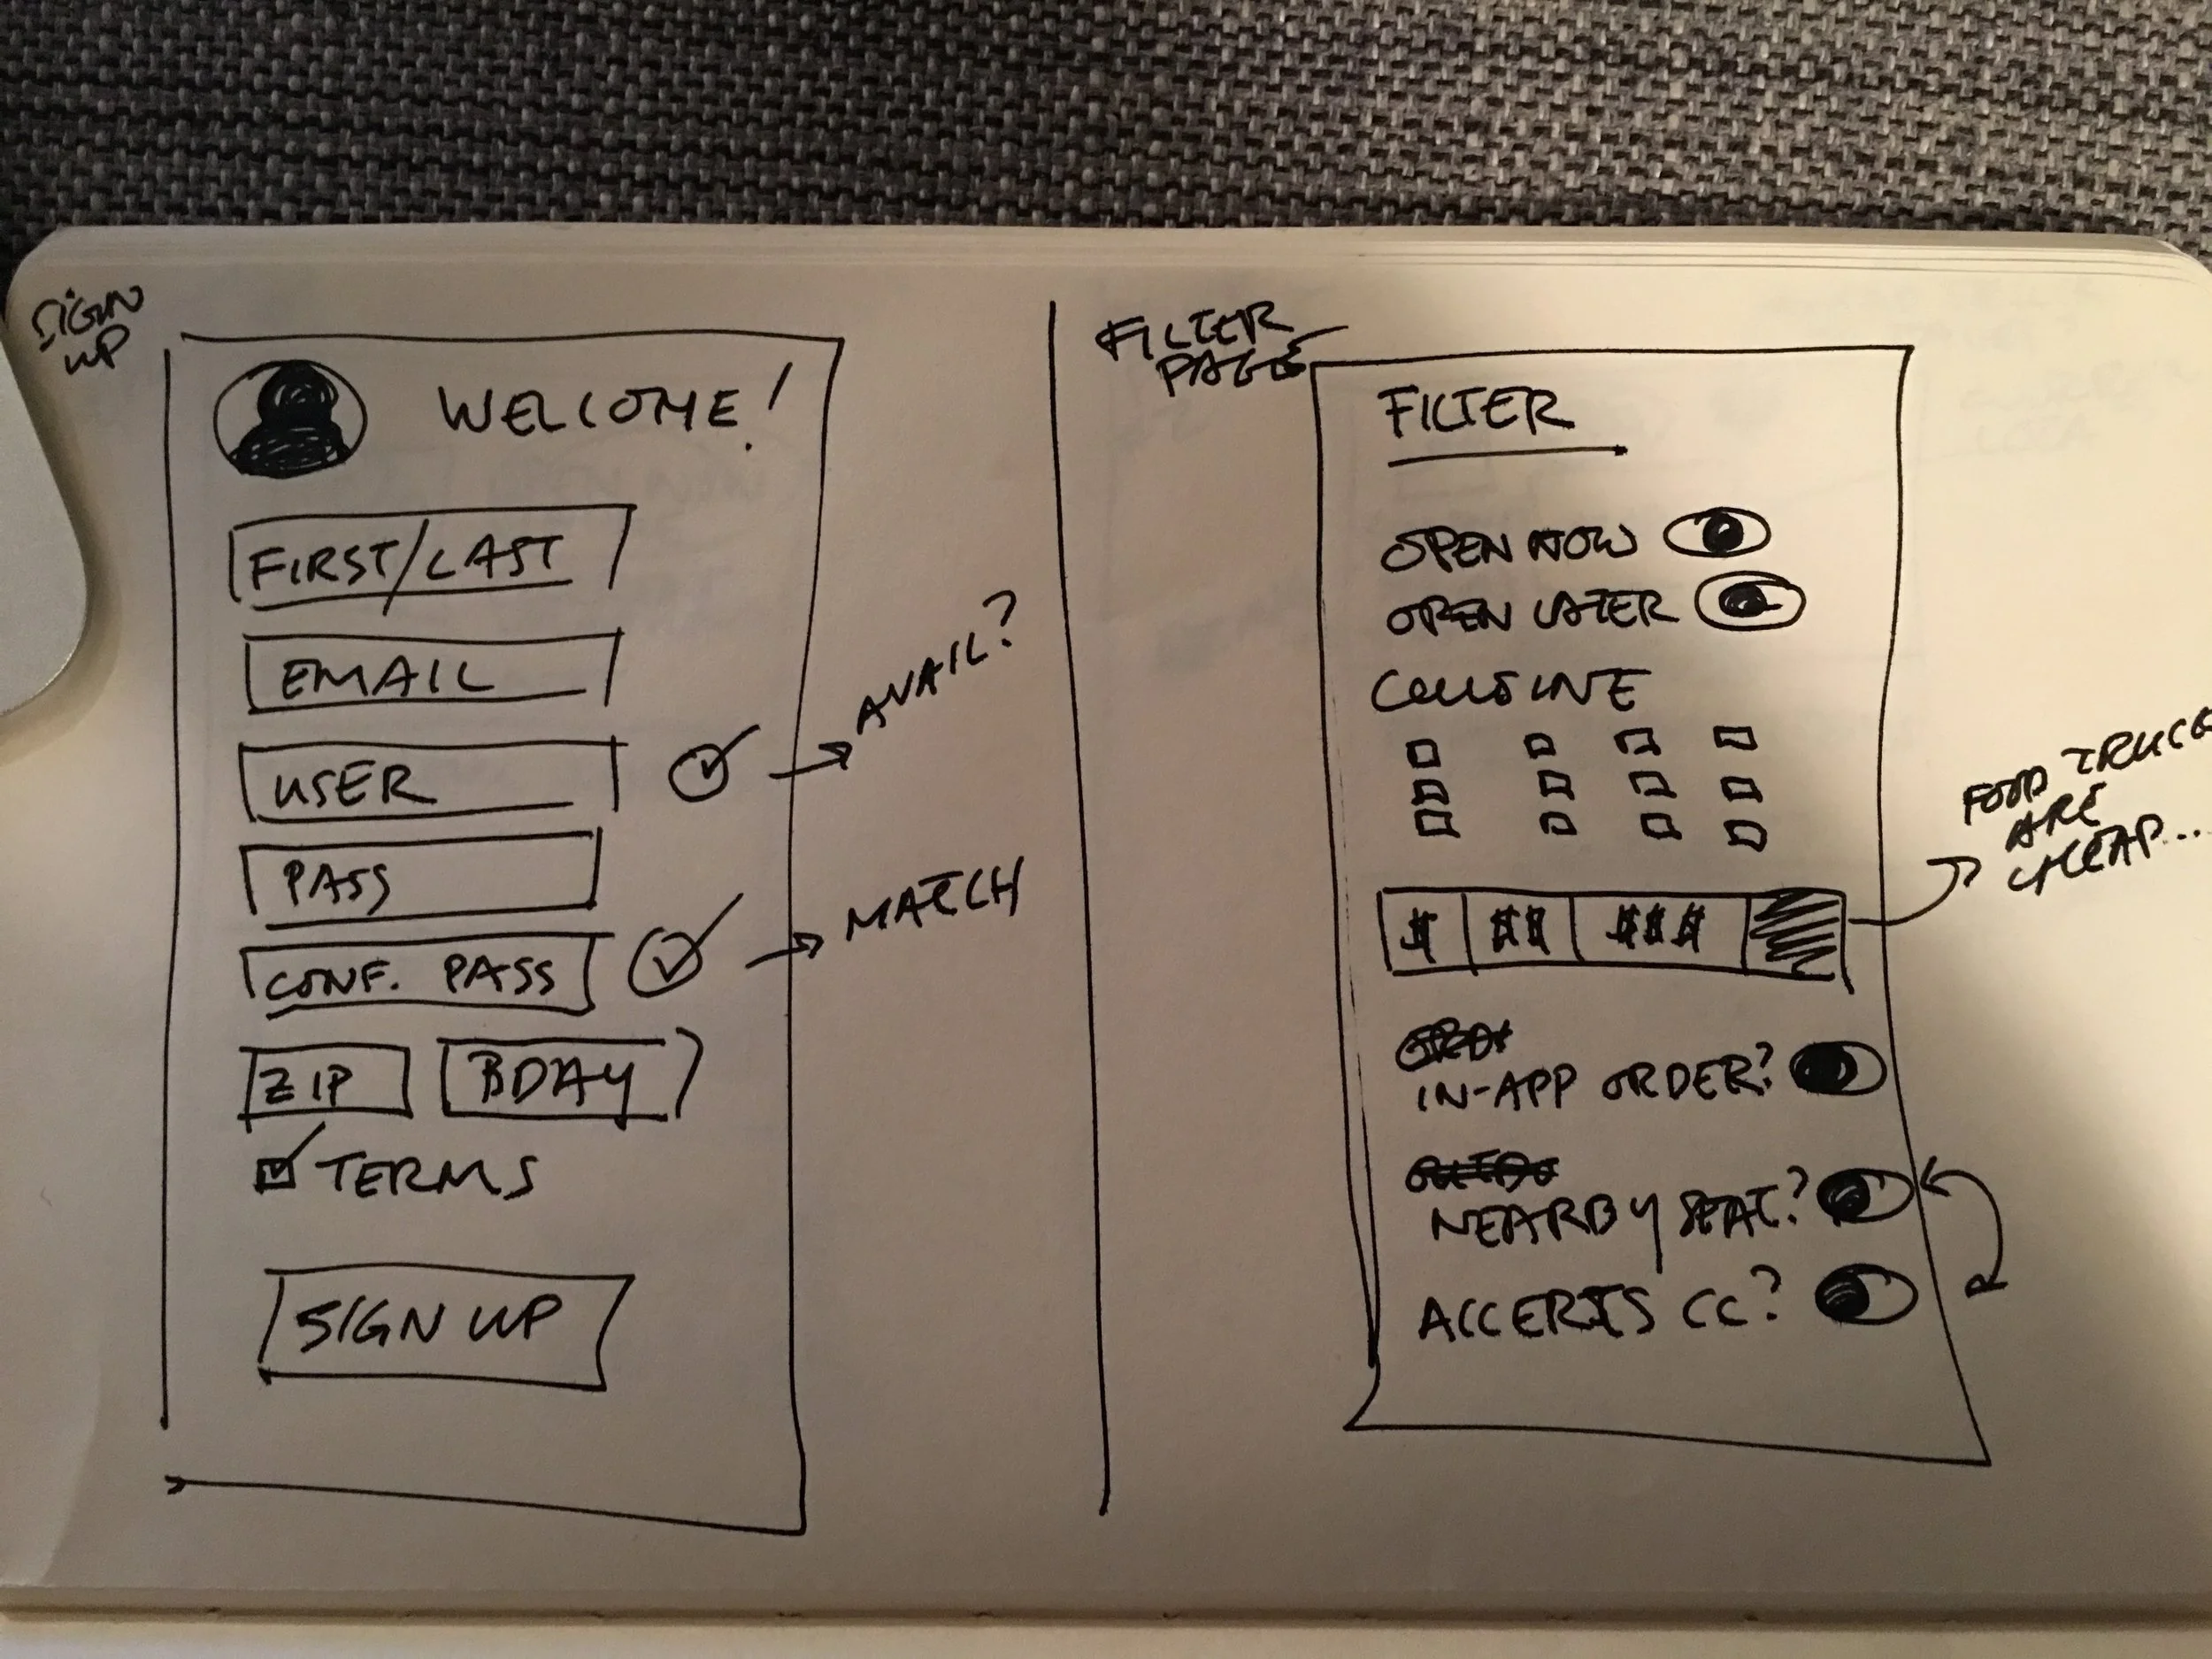 SIGN
UP
WELCOME!
FIRST/LAST
EMAIL
USER
AVAIL?
PASS
CONF. PASS
MATCH
ZIP
BDAY
TERMS
SIGN UP
FILTER
PAGE
FILTER
OPEN NOW
OPEN LATER
CUISINE
$
$$
$$$
FOOD TRUCKS
ARE
CHEAP...
IN-APP ORDER?
NEARBY SEAT.?
ACCEPTS CC?